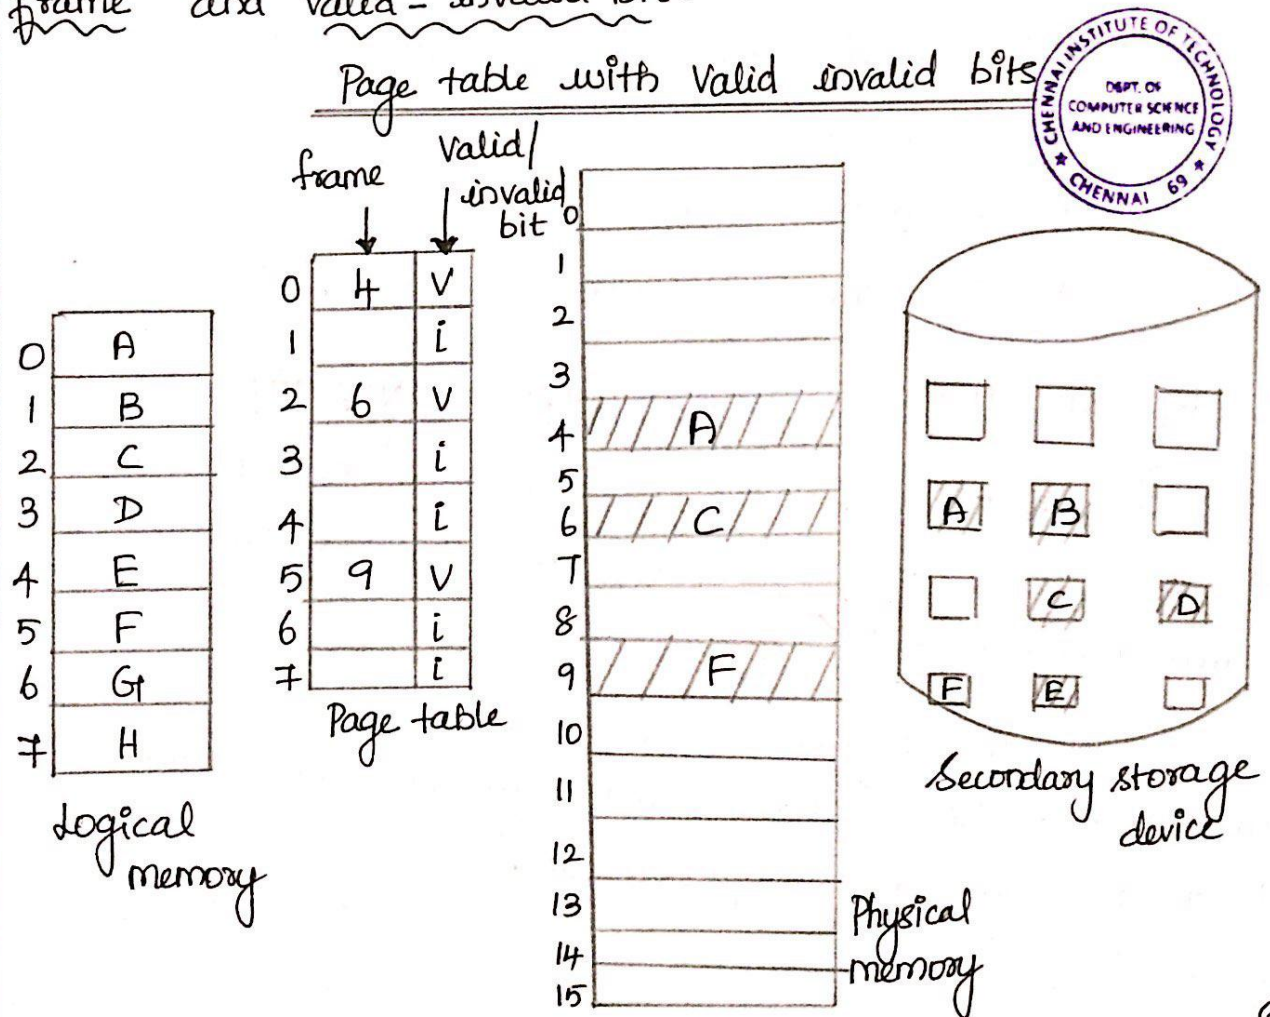 frame and valid - invalid bit
Page table with Valid invalid bits
CHENNAI INSTITUTE OF TECHNOLOGY
DEPT. OF
COMPUTER SCIENCE
AND ENGINEERING
★ CHENNAI 69 ★
frame
Valid/
invalid
bit
0 A
1 B
2 C
3 D
4 E
5 F
6 G
7 H
Logical
memory
0 4 V
1 i
2 6 V
3 i
4 i
5 9 V
6 i
7 i
Page table
0
1
2
3
4 A
5
6 C
7
8
9 F
10
11
12
13
14
15
Physical
memory
A B
C D
F E
Secondary storage
device